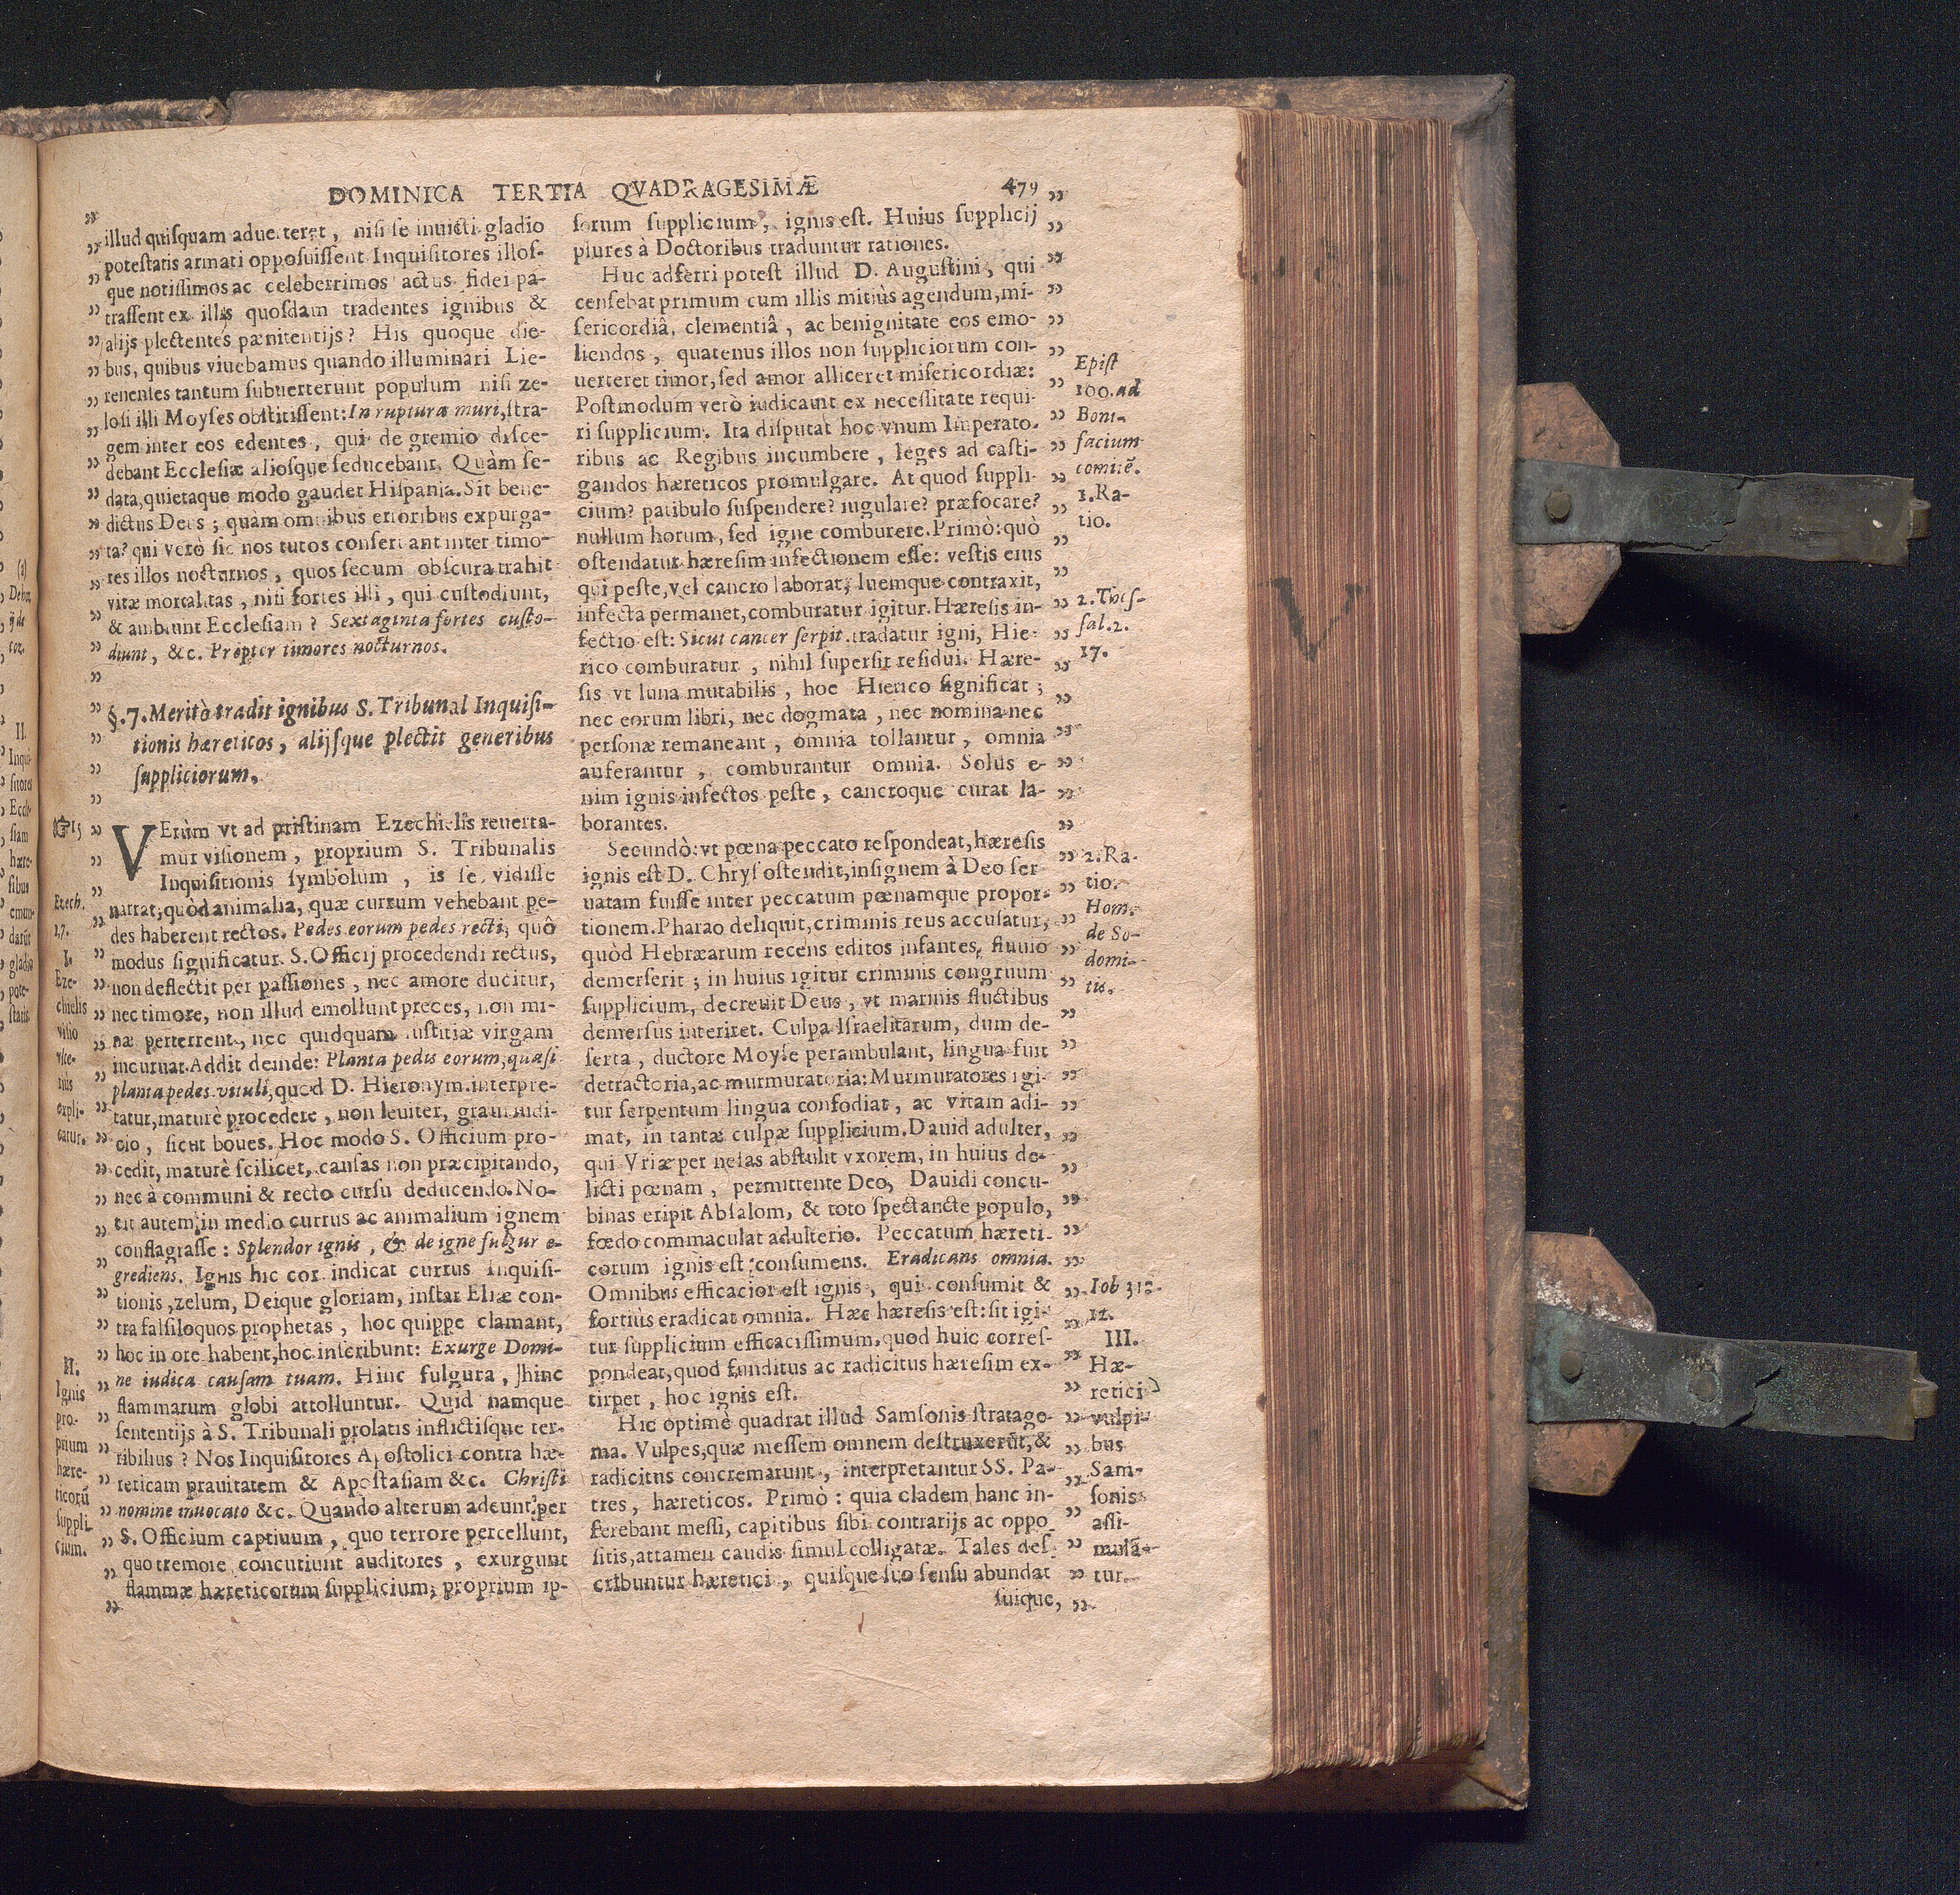 DOMINICA TERTIA QVADRAGESIMÆ 479
illud quiſquam aduerteret, niſi ſe inuicti gladio
poteſtatis armati oppoſuiſſent Inquiſitores illoſ-
que notiſſimos ac celeberrimos actus fidei pa-
traſſent ex illis quoſdam tradentes ignibus &
alijs plectentes pænitentijs? His quoque die-
bus, quibus viuebamus quando illuminari Lie-
renenſes tantum ſubuerterunt populum niſi ze-
loſi illi Moyſes obſtitiſſent: In ruptura muri, ſtra-
gem inter eos edentes, qui de gremio diſce-
debant Eccleſiæ alioſque ſeducebant. Quàm ſe-
data, quietaque modo gaudet Hiſpania. Sit bene-
dictus Deus; quàm omnibus erroribus expurga-
ta? qui verò ſic nos tutos conſeruant inter timo-
res illos nocturnos, quos ſecum obſcura trahit
vitæ mortalitas, niſi fortes illi, qui cuſtodiunt,
& ambiunt Eccleſiam? Sexaginta fortes cuſto-
diunt, &c. Propter timores nocturnos.
§.7. Meritò tradit ignibus S. Tribunal Inquiſi-
tionis hæreticos, alijſque plectit generibus
ſuppliciorum.
VErùm vt ad priſtinam Ezechielis reuerta-
mur viſionem, proprium S. Tribunalis
Inquiſitionis ſymbolum, is ſe vidiſſe
narrat; quòd animalia, quæ currum vehebant pe-
des haberent rectos. Pedes eorum pedes recti, quô
modus ſignificatur. S. Officij procedendi rectus,
non deflectit per paſſiones, nec amore ducitur,
nec timore, non illud emollunt preces, non mi-
næ perterrent, nec quidquam iuſtitiæ virgam
incuruat. Addit deinde: Planta pedis eorum, quaſi
planta pedes vituli, quod D. Hieronym. interpre-
tatur, maturè procedere, non leuiter, graui iudi-
cio, ſicut boues. Hoc modo S. Officium pro-
cedit, maturè ſcilicet, cauſas non præcipitando,
nec à communi & recto curſu deducendo. No-
tit autem, in medio currus ac animalium ignem
conflagraſſe: Splendor ignis, & de igne fulgur e-
grediens. Ignis hic cor indicat currus Inquiſi-
tionis, zelum, Deique gloriam, inſtar Eliæ con-
tra falſiloquos prophetas, hoc quippe clamant,
hoc in ore habent, hoc inſcribunt: Exurge Domi-
ne iudica cauſam tuam. Hinc fulgura, hinc
flammarum globi attolluntur. Quid namque
ſententijs à S. Tribunali prolatis inflictiſque ter-
ribilius? Nos Inquiſitores Apoſtolici contra hæ-
reticam prauitatem & Apoſtaſiam &c. Chriſti
nomine inuocato &c. Quando alterum adeunt per
S. Officium captiuum, quo terrore percellunt,
quo tremore concutiunt auditores, exurgunt
flammæ hæreticorum ſupplicium, proprium ip-
15
Ezech.
1.7.
I.
Eze-
chielis
viſio
vlte-
rius
expli-
catur.
II.
Ignis
pro-
prium
hære-
ticorū
ſuppli-
cium.
ſorum ſupplicium, ignis eſt. Huius ſupplicij
plures à Doctoribus traduntur rationes.
Huc adferri poteſt illud D. Auguſtini, qui
cenſebat primum cum illis mitiùs agendum, mi-
ſericordiâ, clementiâ, ac benignitate eos emo-
liendos, quatenus illos non ſuppliciorum con-
uerteret timor, ſed amor alliceret miſericordiæ:
Poſtmodum verò iudicauit ex neceſſitate requi-
ri ſupplicium. Ita diſputat hoc vnum Imperato-
ribus ac Regibus incumbere, leges ad caſti-
gandos hæreticos promulgare. At quod ſuppli-
cium? patibulo ſuſpendere? iugulare? præfocare?
nullum horum, ſed igne comburere. Primò: quò
oſtendatur hæreſim infectionem eſſe: veſtis eius
qui peſte, vel cancro laborat, luemque contraxit,
infecta permanet, comburatur igitur. Hæreſis in-
fectio eſt: Sicut cancer ſerpit. tradatur igni, Hie-
rico comburatur, nihil ſuperſit reſidui. Hære-
ſis vt luna mutabilis, hoc Hierico ſignificat;
nec eorum libri, nec dogmata, nec nomina nec
perſonæ remaneant, omnia tollantur, omnia
auferantur, comburantur omnia. Solus e-
nim ignis infectos peſte, cancroque curat la-
borantes.
Secundò: vt pœna peccato reſpondeat, hæreſis
ignis eſt D. Chryſ oſtendit, inſignem à Deo ſer
uatam fuiſſe inter peccatum pœnamque propor-
tionem. Pharao deliquit, criminis reus accuſatur,
quòd Hebræarum recens editos infantes, fluuio
demerſerit; in huius igitur criminis congruum
ſupplicium, decreuit Deus, vt marinis fluctibus
demerſus interiret. Culpa Iſraelitarum, dum de-
ſerta, ductore Moyſe perambulant, lingua fuit
detractoria, ac murmuratoria: Murmuratores igi-
tur ſerpentum lingua confodiat, ac vitam adi-
mat, in tantæ culpæ ſupplicium. Dauid adulter,
qui Vriæ per nefas abſtulit vxorem, in huius de-
licti pœnam, permittente Deo, Dauidi concu-
binas eripit Abſalom, & toto ſpectancte populo,
fœdo commaculat adulterio. Peccatum hæreti-
corum ignis eſt conſumens. Eradicans omnia.
Omnibus efficacior eſt ignis, qui conſumit &
fortiùs eradicat omnia. Hæc hæreſis eſt: ſit igi-
tur ſupplicium efficaciſſimum, quod huic correſ-
pondeat, quod funditus ac radicitus hæreſim ex-
tirpet, hoc ignis eſt.
Hic optimè quadrat illud Samſonis ſtratage-
ma. Vulpes, quæ meſſem omnem deſtruxerūt, &
radicitus concremarunt, interpretantur SS. Pa-
tres, hæreticos. Primò: quia cladem hanc in-
ferebant meſſi, capitibus ſibi contrarijs ac oppo
ſitis, attamen caudis ſimul colligatæ. Tales deſ-
cribuntur hæretici, quiſque ſuo ſenſu abundat
ſuique,
Epiſt
100. ad
Boni-
facium
comitē.
1. Ra-
tio.
2. Theſ-
ſal. 2.
17.
2. Ra-
tio.
Hom.
de So-
domi-
tis.
Iob 31.
12.
III.
Hæ-
retici
vulpi-
bus
Sam-
ſonis
aſſi-
mulā-
tur.
(a)
II.
Inqui-
ſitores
Eccle-
ſiam
hære-
ſibus
emun-
darūt
gladio
pote-
ſtatis
V